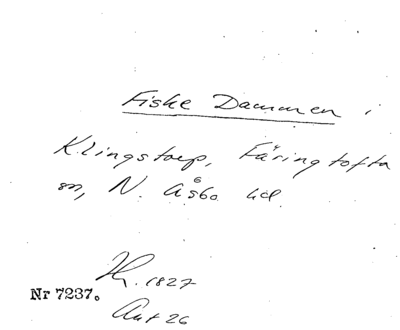 Fiske Dammen i
Klingstorp, Färingtofta
sn, N. Åsbo hd.
1827
Nr 7237.
Ant 26